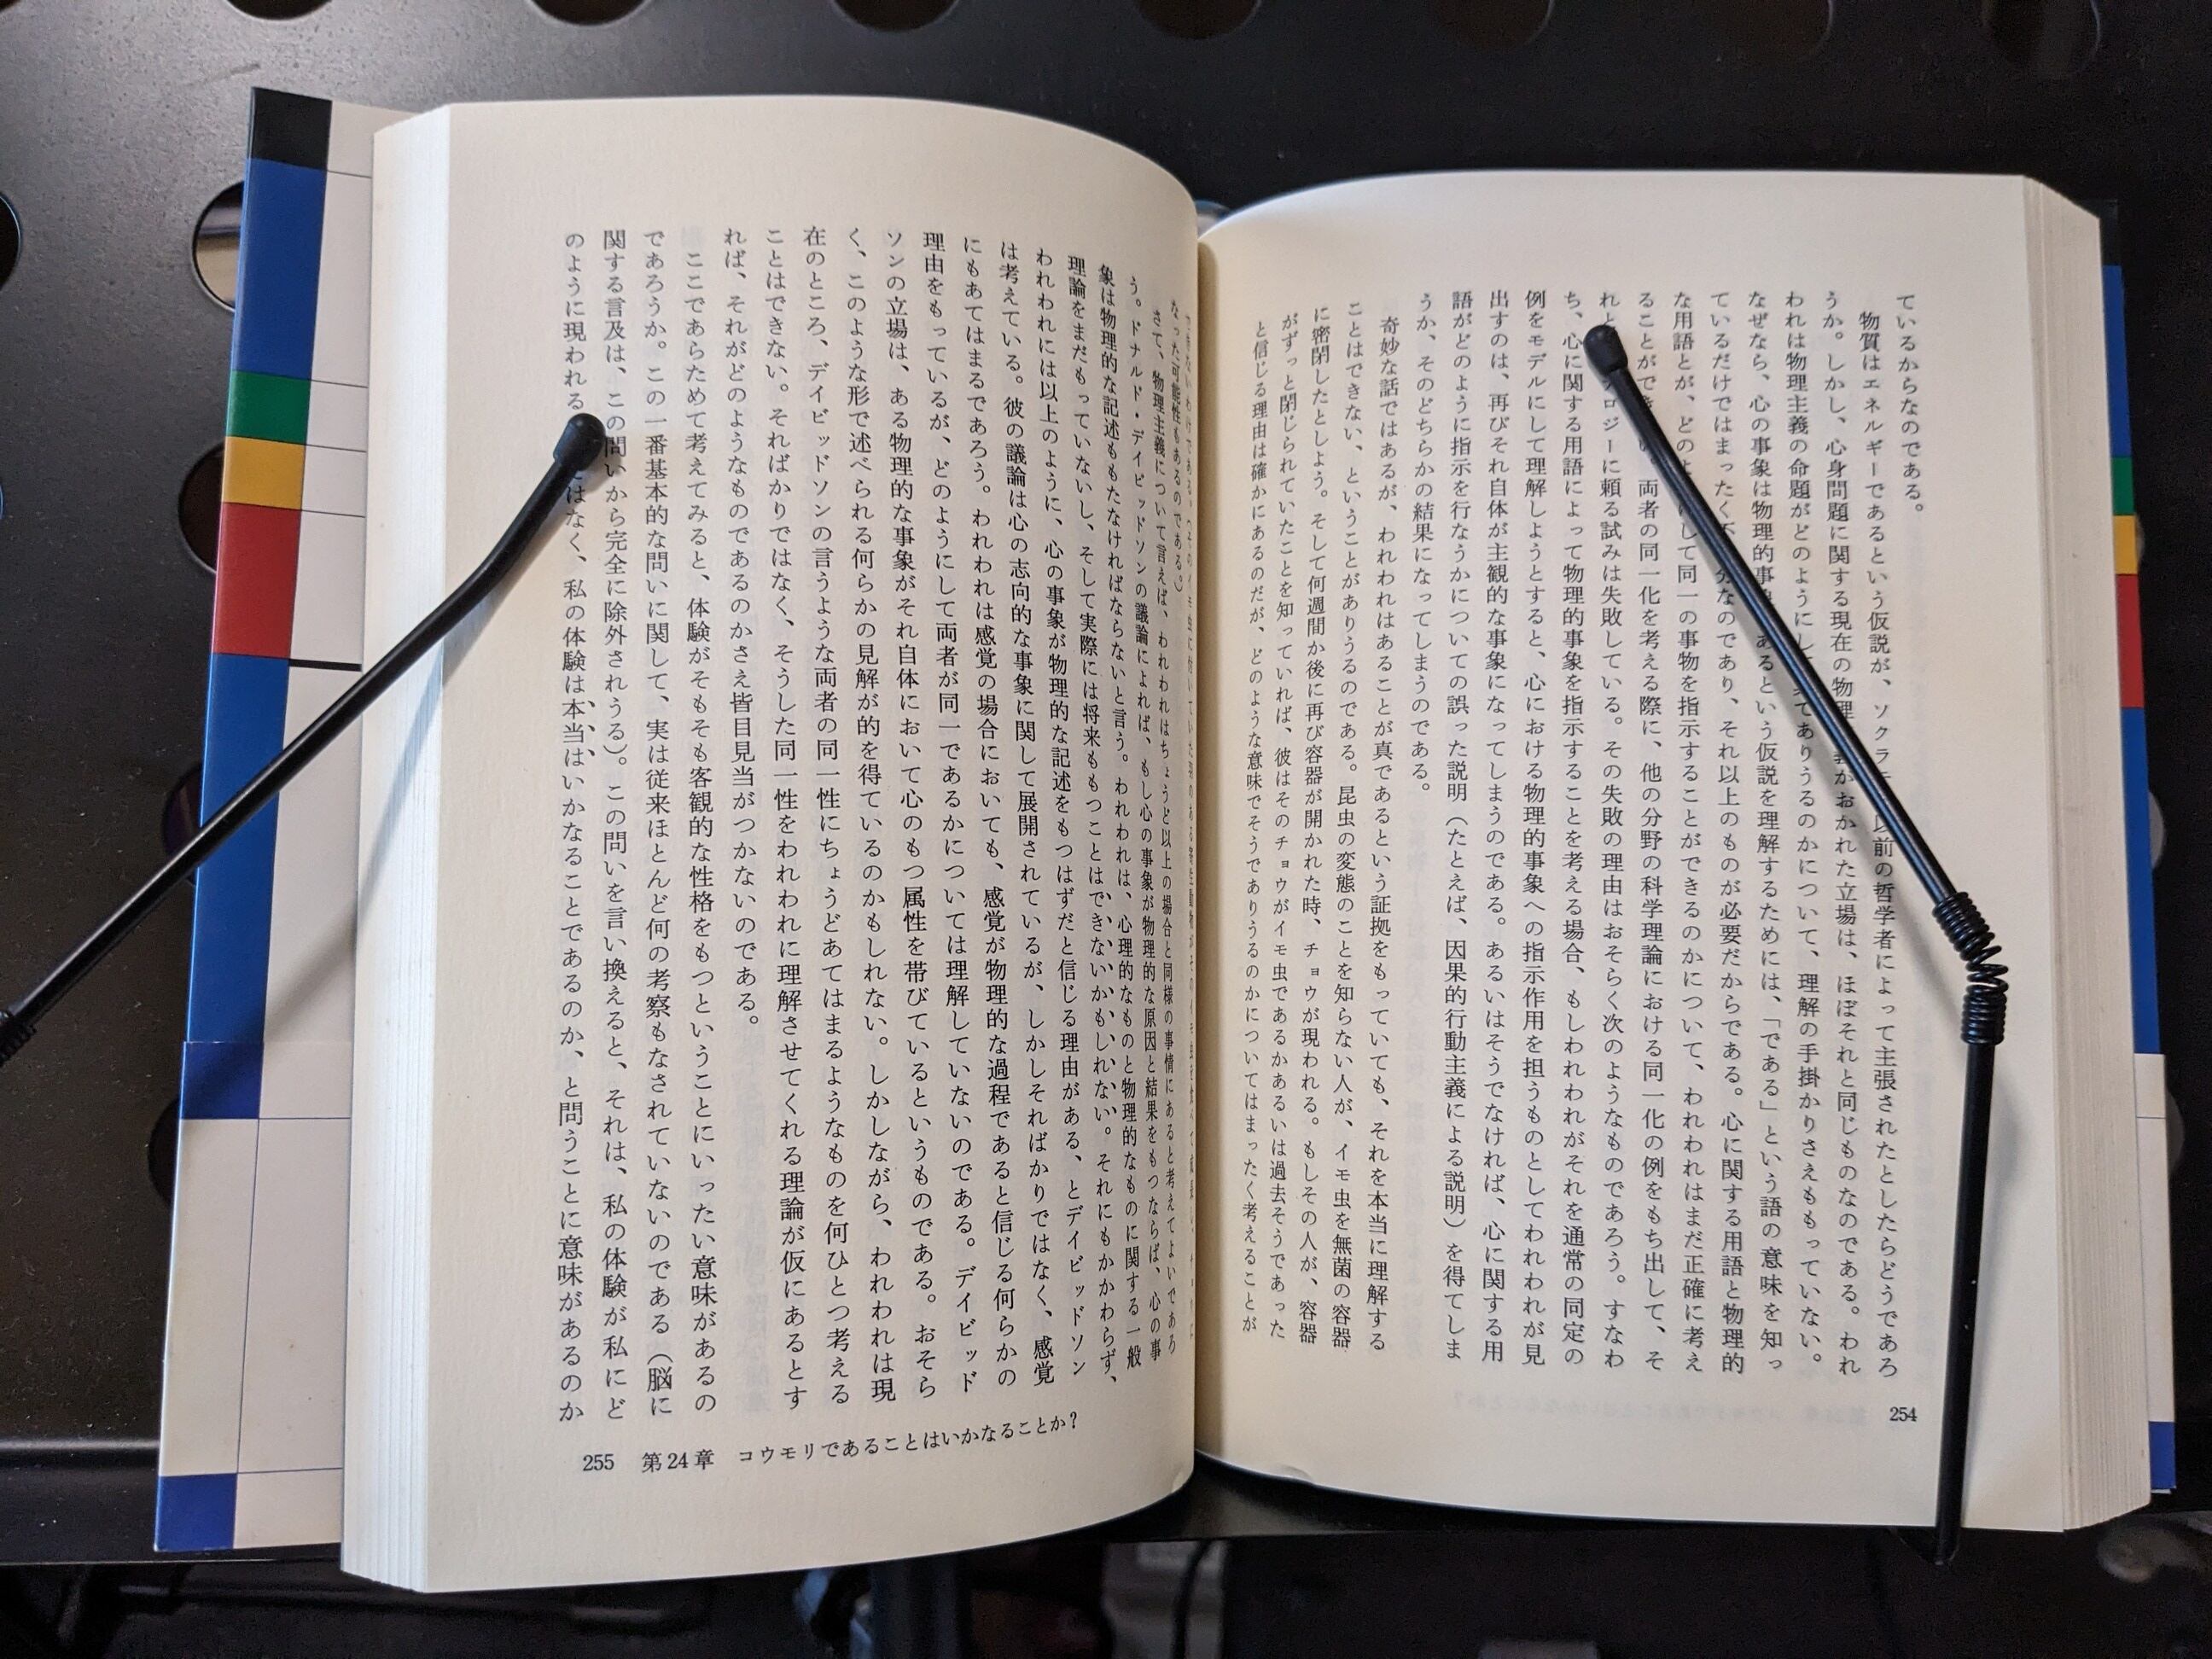 ているからなのである。
物質はエネルギーであるという仮説が、ソクラテ以前の哲学者によって主張されたとしたらどうであろ
うか。しかし、心身問題に関する現在の物理 がおかれた立場は、ほぼそれと同じものなのである。われ
われは物理主義の命題がどのようにし てありうるのかについて、理解の手掛かりさえもっていない。
なぜなら、心の事象は物理的事 あるという仮説を理解するためには、「である」という語の意味を知っ
ているだけではまったく 分なのであり、それ以上のものが必要だからである。心に関する用語と物理的
な用語とが、どのよ して同一の事物を指示することができるのかについて、われわれはまだ正確に考え
ることができ 両者の同一化を考える際に、他の分野の科学理論における同一化の例をもち出して、そ
れと ロジーに頼る試みは失敗している。その失敗の理由はおそらく次のようなものであろう。すなわ
ち、心に関する用語によって物理的事象を指示することを考える場合、もしわれわれがそれを通常の同定の
例をモデルにして理解しようとすると、心における物理的事象への指示作用を担うものとしてわれわれが見
出すのは、再びそれ自体が主観的な事象になってしまうのである。あるいはそうでなければ、心に関する用
語がどのように指示を行なうかについての誤った説明（たとえば、因果的行動主義による説明）を得てしま
うか、そのどちらかの結果になってしまうのである。
奇妙な話ではあるが、われわれはあることが真であるという証拠をもっていても、それを本当に理解する
ことはできない、ということがありうるのである。昆虫の変態のことを知らない人が、イモ虫を無菌の容器
に密閉したとしよう。そして何週間か後に再び容器が開かれた時、チョウが現われる。もしその人が、容器
がずっと閉じられていたことを知っていれば、彼はそのチョウがイモ虫であるかあるいは過去そうであった
と信じる理由は確かにあるのだが、どのような意味でそうでありうるのかについてはまったく考えることが
254
なった可能性もあるのである。）
さて、物理主義について言えば、われわれはちょうど以上の場合と同様の事情にあると考えてよいであろ
う。ドナルド・デイビッドソンの議論によれば、もし心の事象が物理的な原因と結果をもつならば、心の事
象は物理的な記述ももたなければならないと言う。われわれは、心理的なものと物理的なものに関する一般
理論をまだもっていないし、そして実際には将来ももつことはできないかもしれない。それにもかかわらず、
われわれには以上のように、心の事象が物理的な記述をもつはずだと信じる理由がある、とデイビッドソン
は考えている。彼の議論は心の志向的な事象に関して展開されているが、しかしそればかりではなく、感覚
にもあてはまるであろう。われわれは感覚の場合においても、感覚が物理的な過程であると信じる何らかの
理由をもっているが、どのようにして両者が同一であるかについては理解していないのである。デイビッド
ソンの立場は、ある物理的な事象がそれ自体において心のもつ属性を帯びているというものである。おそら
く、このような形で述べられる何らかの見解が的を得ているのかもしれない。しかしながら、われわれは現
在のところ、デイビッドソンの言うような両者の同一性にちょうどあてはまるようなものを何ひとつ考える
ことはできない。そればかりではなく、そうした同一性をわれわれに理解させてくれる理論が仮にあるとす
れば、それがどのようなものであるのかさえ皆目見当がつかないのである。
ここであらためて考えてみると、体験がそもそも客観的な性格をもつということにいったい意味があるの
であろうか。この一番基本的な問いに関して、実は従来ほとんど何の考察もなされていないのである（脳に
関する言及は、この問いから完全に除外されうる）。この問いを言い換えると、それは、私の体験が私にど
のように現われる はなく、私の体験は本当はいかなることであるのか、と問うことに意味があるのか
255 第24章 コウモリであることはいかなることか？